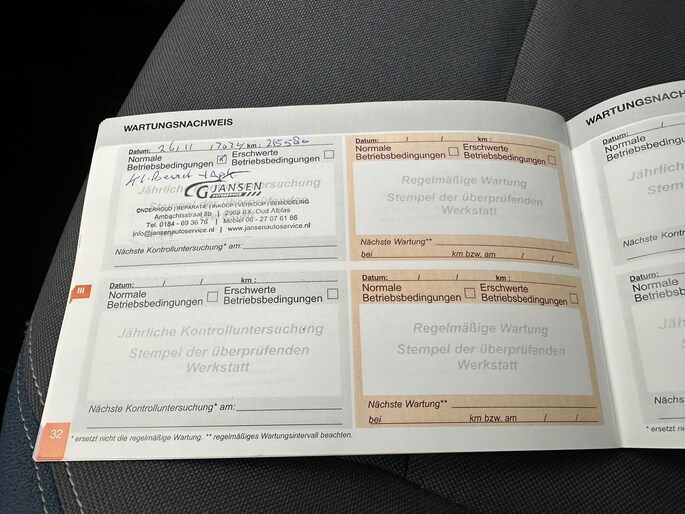 WARTUNGSNACHWEIS
Datum: 26/11/2024 km: 21558
Normale Betriebsbedingungen
Erschwerte Betriebsbedingungen
Jährliche Kontrolluntersuchung
Stempel
CG JANSEN
AUTOSERVICE
ONDERHOUD | REPARATIE | INKOOP | VERKOOP | BEMIDDELING
Ambachtsstraat 8b | 2969 BX. Oud Alblas
Tel. 0184 - 69 36 76 | Mobiel 06 - 27 07 61 86
info@jansenautoservice.nl | www.jansenautoservice.nl
Nächste Kontrolluntersuchung* am:
Datum: / / km :
Normale Betriebsbedingungen
Erschwerte Betriebsbedingungen
Regelmäßige Wartung
Stempel der überprüfenden
Werkstatt
Nächste Wartung**
bei km bzw. am / /
III
Datum: / / km :
Normale Betriebsbedingungen
Erschwerte Betriebsbedingungen
Jährliche Kontrolluntersuchung
Stempel der überprüfenden
Werkstatt
Nächste Kontrolluntersuchung* am:
Datum: / / km :
Normale Betriebsbedingungen
Erschwerte Betriebsbedingungen
Regelmäßige Wartung
Stempel der überprüfenden
Werkstatt
Nächste Wartung**
bei km bzw. am / /
32
* ersetzt nicht die regelmäßige Wartung. ** regelmäßiges Wartungsintervall beachten.
WARTUNGSNACH
Datum: /
Normale
Betriebsbedin
Jährli
Ste
Nächste Kont
Datum:
Normale
Betriebsb
Jä
Nächste
* ersetzt